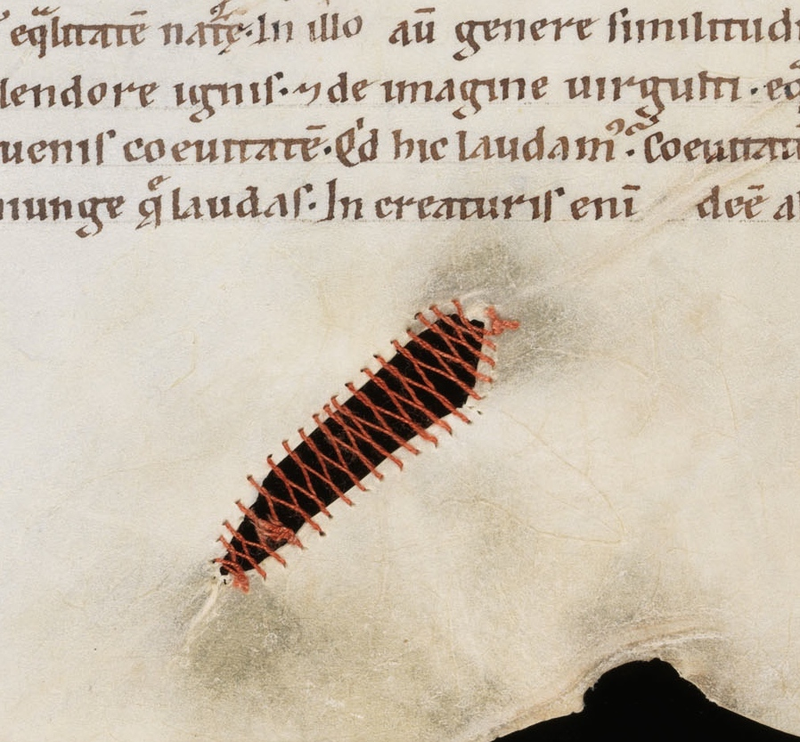 eqͣlitatē natͥrę. In illo aū genere similitudi
lendore ignis. ⁊ de imagine uirgulti. eq
uenis coeuitatē. Qͥd hic laudamꝰ. Coeuitatē
iunge qͤ laudas. In creaturis enī deē a